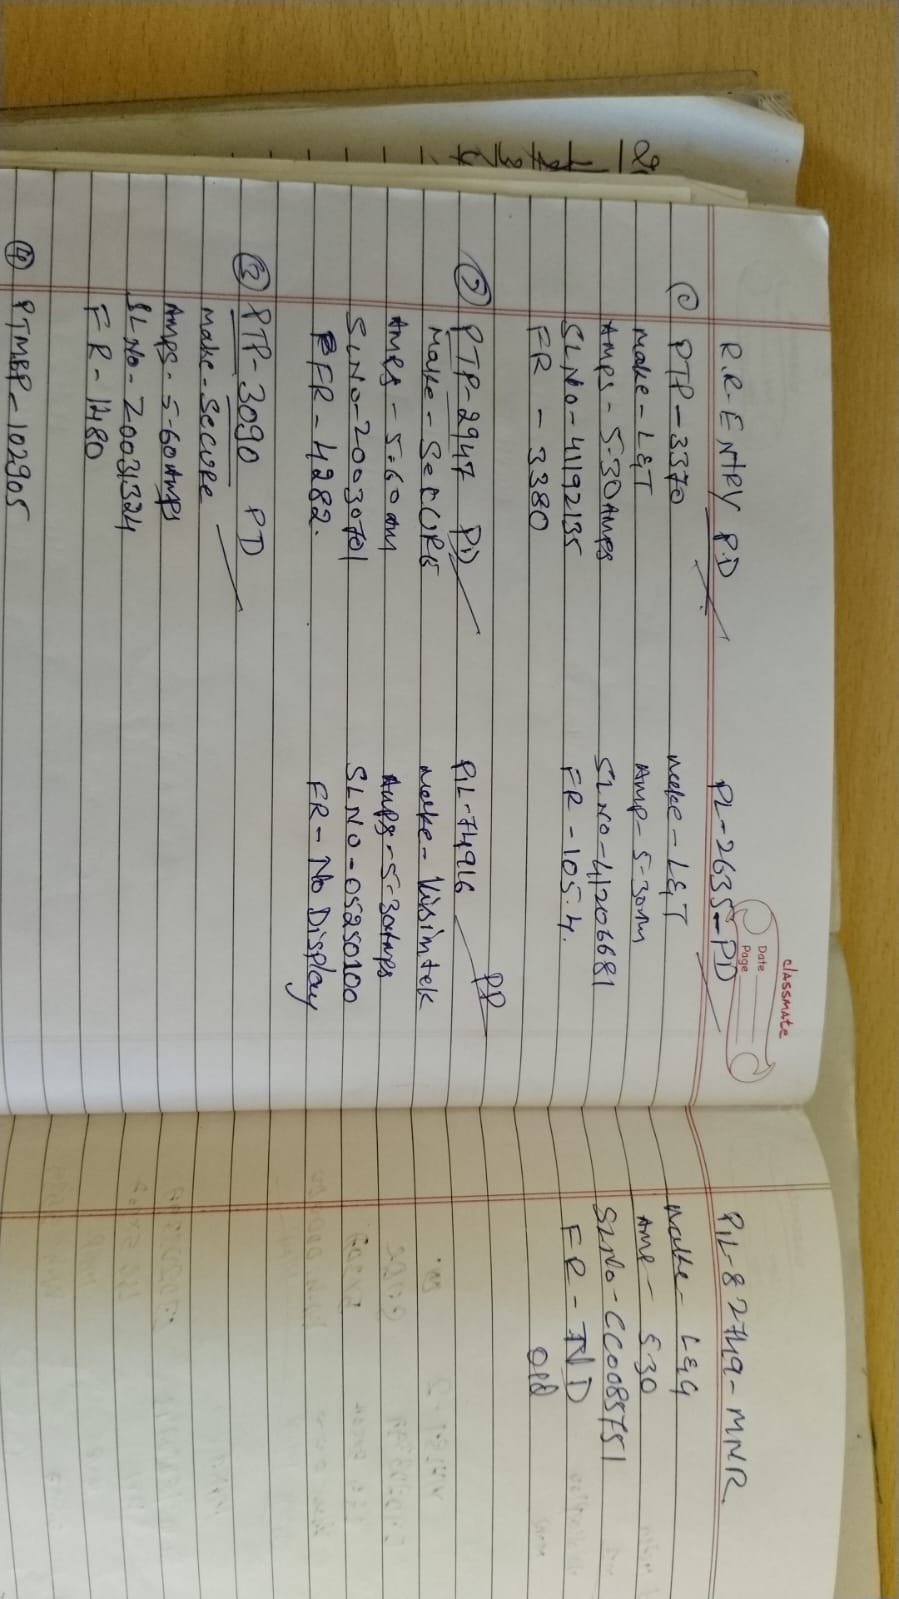 classmate
Date
Page
R.R-ENtRY P.D
① PTP-3370
make-L&T
Amps-5-30Amps
SLNo-41192135
FR-3380
② PTP-2947 PD
Make-SeCURE
Amps-5-60am
SLNo-20030701
FR-4282.
③ PTP-3090 PD
make-Secure
Amps-5-60Amps
SLNo-20031324
FR-1480
④ PTMBP-102905
PL-2635-PD
make-L&T
Amp-5-30m
SLNO-41206681
FR-105.4.
PIL-74916 PD
make-
Amps-5-30Amps
SLNO-05250100
FR-No Display
PIL-82749-MNR
make-L&G
Amp-530
SLNo-CC0085751
FR-ND
old